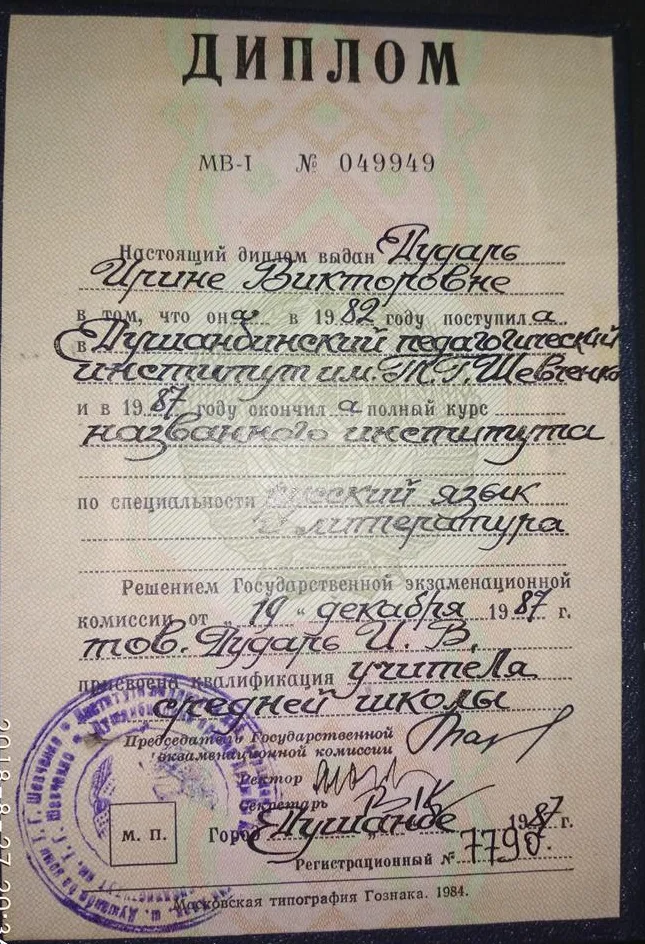 ДИПЛОМ
МВ-I № 049949
Настоящий диплом выдан Дударь
Ирине Викторовне
в том, что она в 1982 году поступила
в Душанбинский педагогический
институт им. Т. Г. Шевченко
и в 1987 году окончила полный курс
названного института
по специальности русский язык
и литература
Решением Государственной экзаменационной
комиссии от „19“ декабря 1987 г.
тов. Дударь И. В.
присвоена квалификация учителя
средней школы
Председатель Государственной
экзаменационной комиссии
Ректор
Секретарь
М. П. Город Душанбе 1987 г.
Регистрационный № 7790.
Московская типография Гознака. 1984.